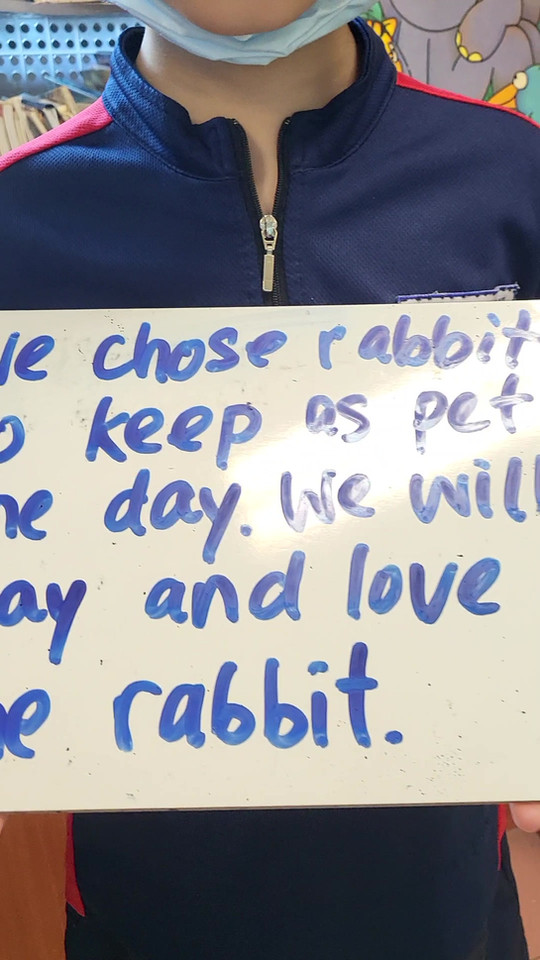 We chose rabbit
o keep as pet
ne day. We will
ay and love
he rabbit.